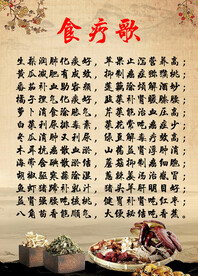 食疗歌
生梨润肺化痰好，苹果止泻营养高；
黄瓜减肥有成效，抑制癌症猕猴桃；
番茄补血助容颜，莲藕除烦解酒妙；
橘子理气好化痰，韭菜补肾暖膝腰；
萝卜消食除胀气，芹菜能治血压高；
白菜利尿排毒素，菜花常吃癌症少；
冬瓜消肿又利尿，绿豆解毒疗效高；
木耳抗癌散血淤，山药益肾浮肿消；
海带含碘散淤结，蘑菇抑制癌细胞；
胡椒驱寒兼除湿，葱辣姜汤治感冒；
鱼虾猪蹄补乳汁，猪肝羊肝明目好；
益肾强腰吃核桃，健肾补脾吃红枣；